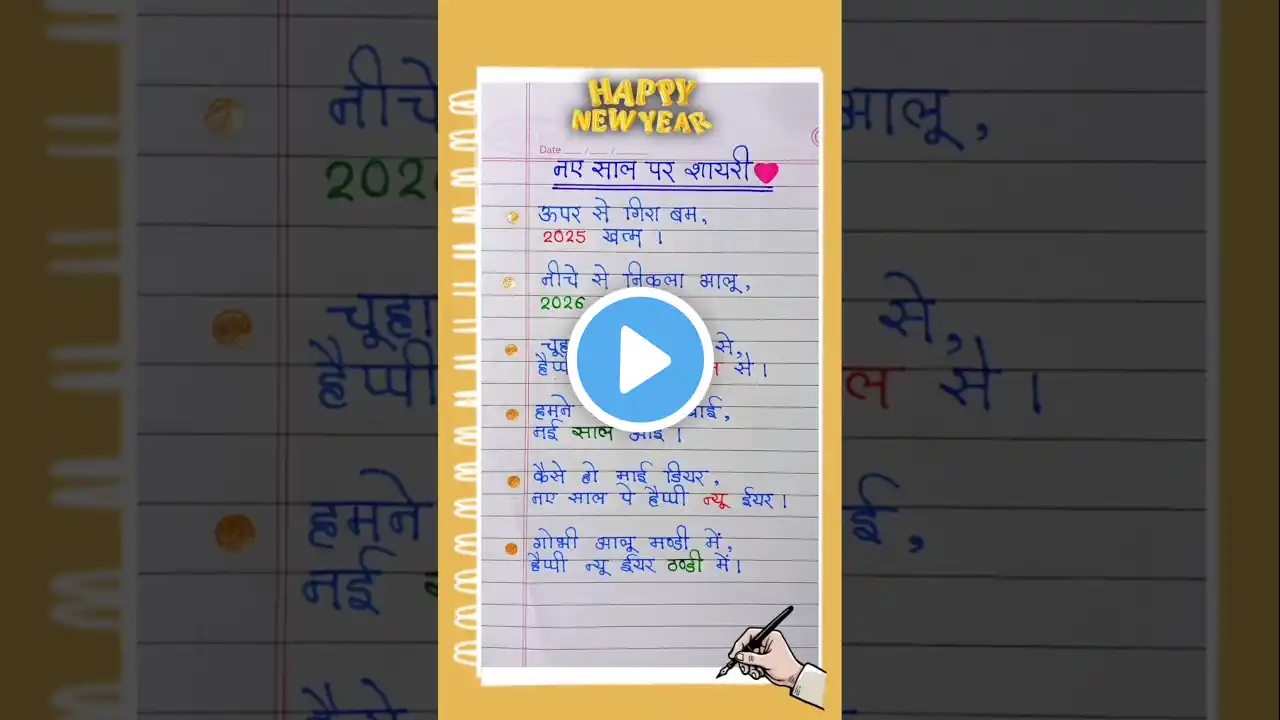 HAPPY
NEW YEAR
Date
नए साल पर शायरी
ऊपर से गिरा बम,
2025 खत्म ।
नीचे से निकला भालू,
2026
चूहा से,
हैप्पी से ।
हमने
नई साल आई ।
कैसे हो माई डियर,
नए साल पे हैप्पी न्यू ईयर ।
गोभी आलू मण्डी में,
हैप्पी न्यू ईयर ठण्डी में ।